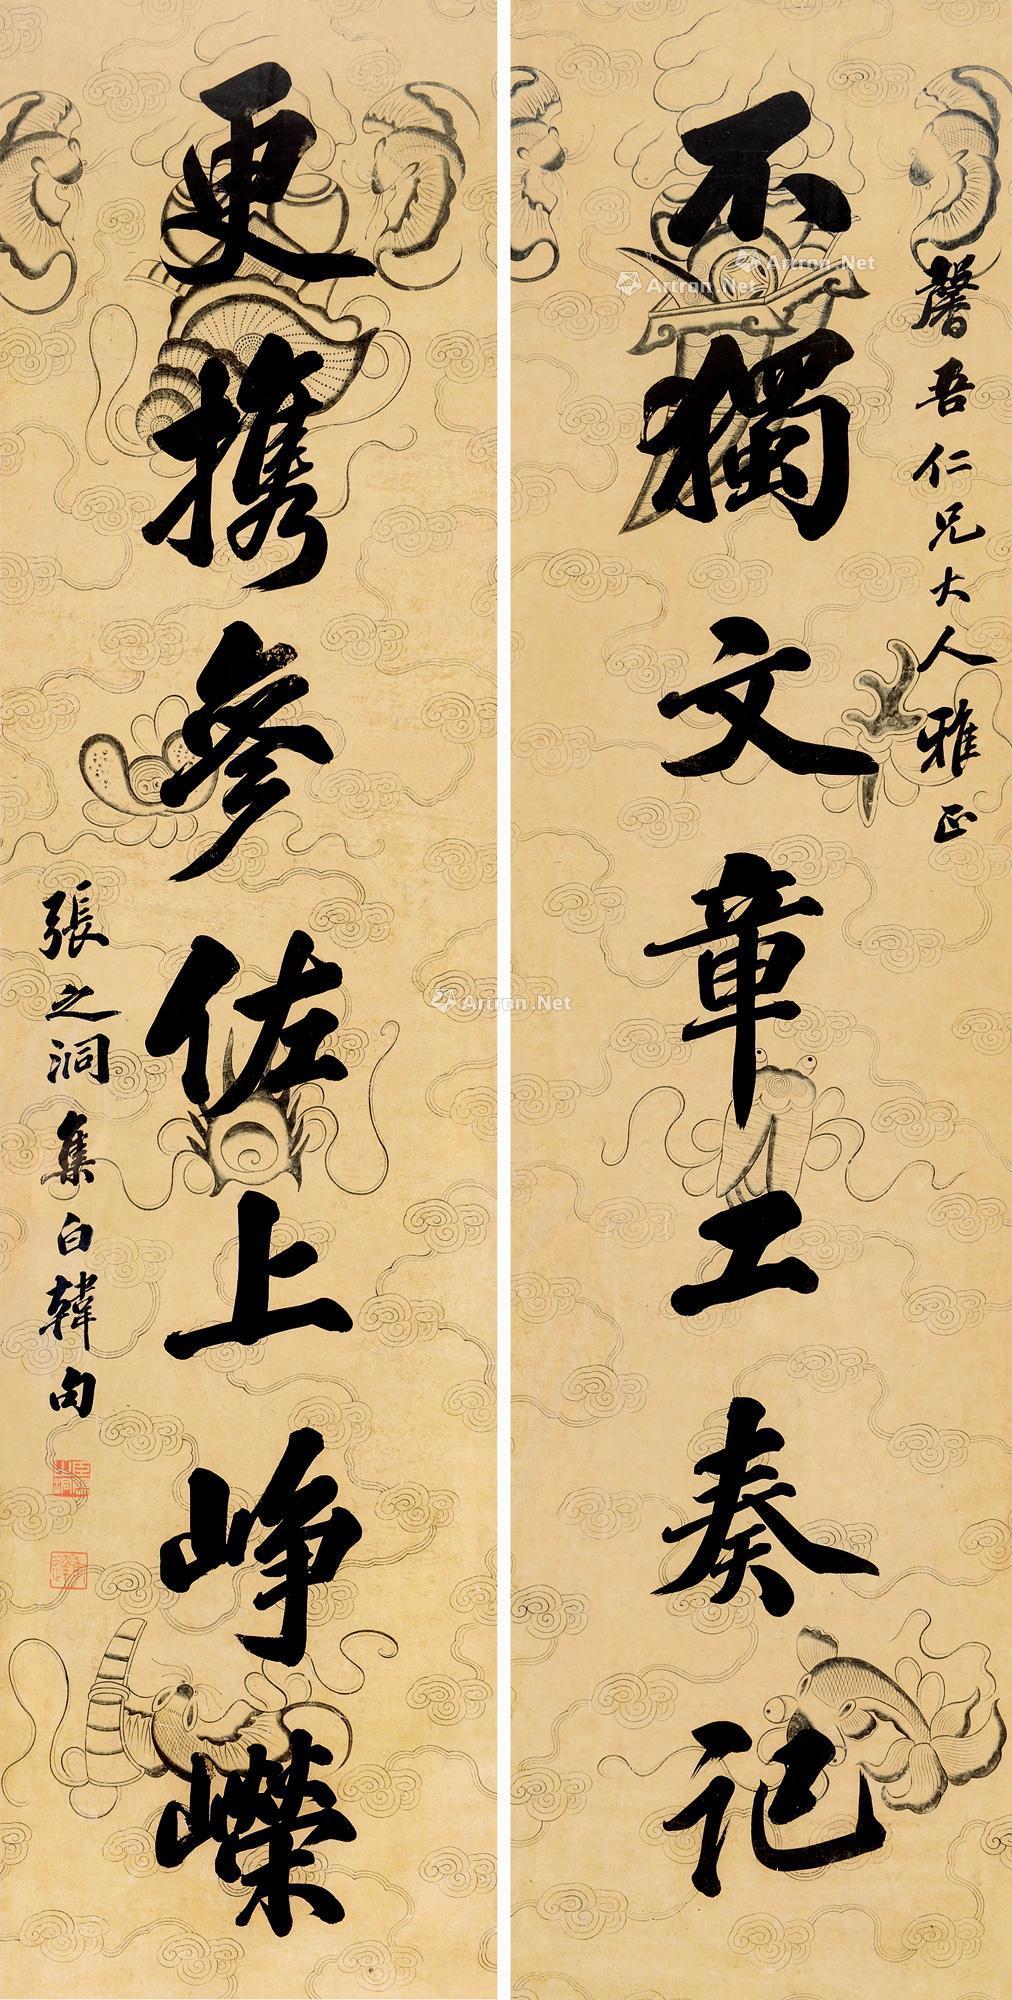 馨吾仁兄大人雅正
不獨文章工奏記
更攜參佐上崢嶸
張之洞集白韓句
Artron.Net
Artron.Net
Artron.Net